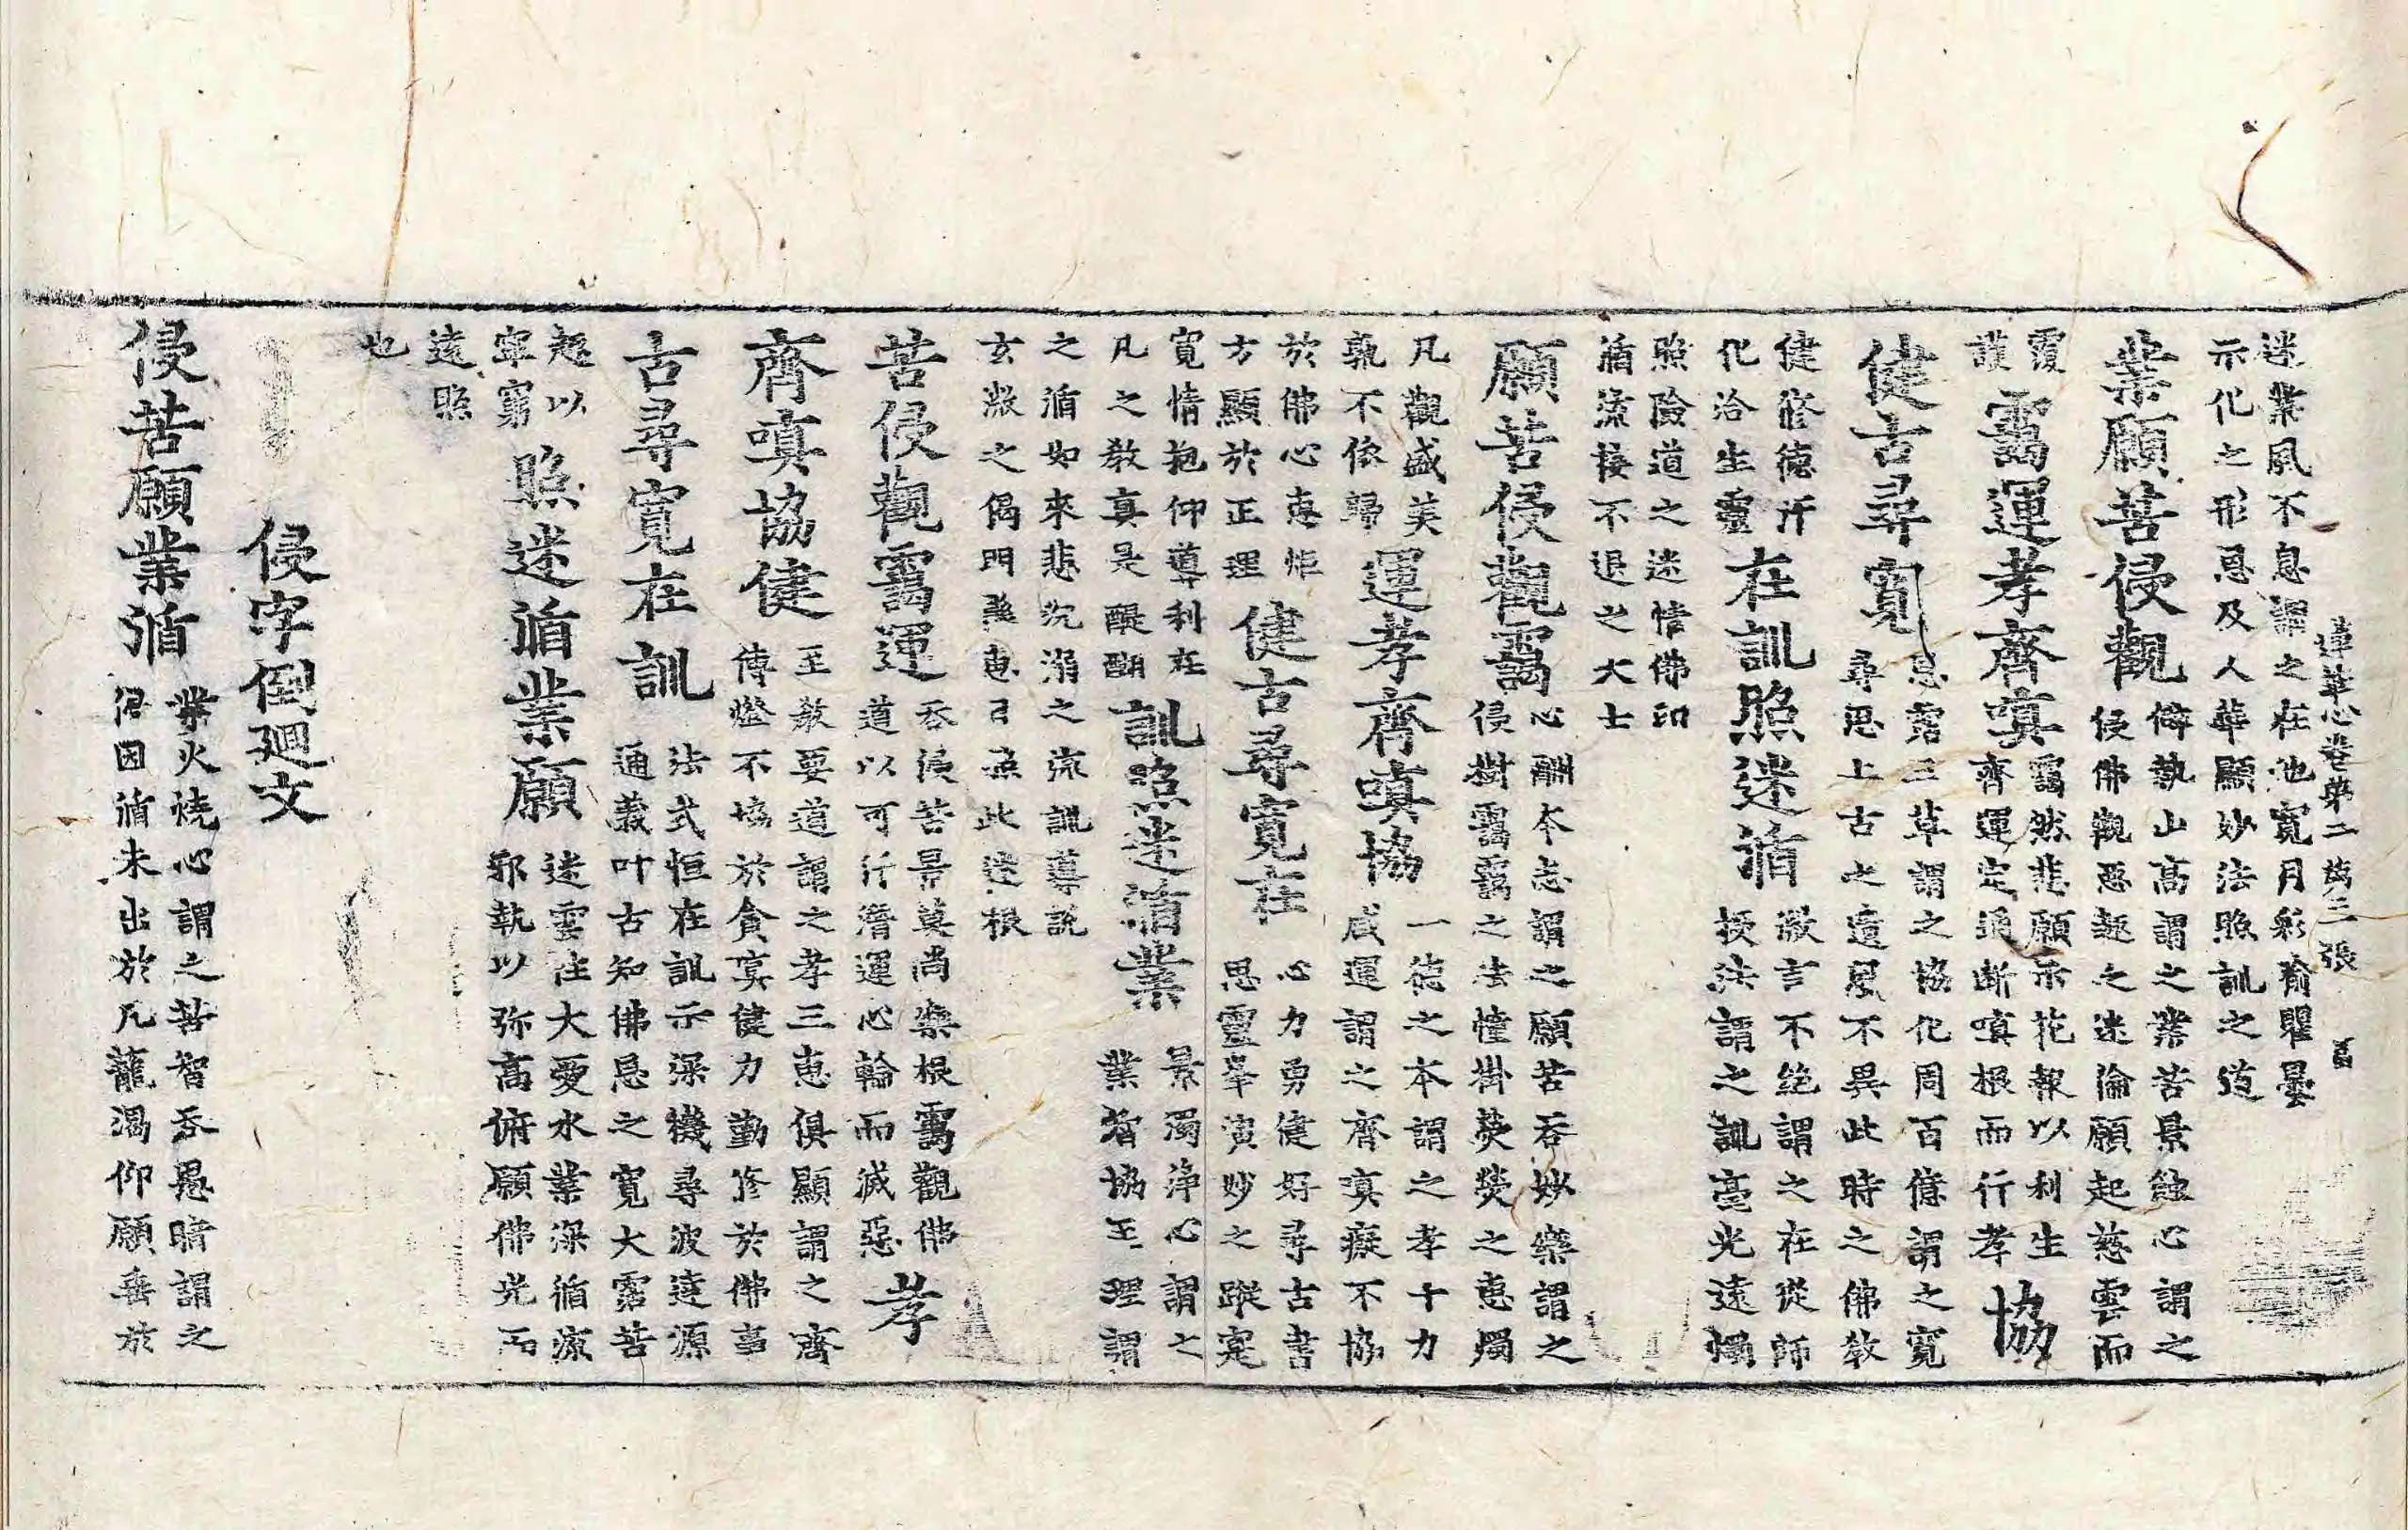 蓮華心卷第二 三張
迷業風不息謂之在池寬月彩瞿曇
示化之形恩及人華顯妙法照訓之道
業願苦侵觀
僻執山高謂之業苦景蝕心謂之
侵佛觀惡趣之迷倫願起慈雲而
覆
護
靄運孝齊嗔
靄然悲願示花報以利生
齊運定通斷嗔根而行孝
協
健古尋寬
恩霑三草謂之協化周百億謂之寬
尋思上古之遺風不異此時之佛教
健修德行
化洽生靈
在訓照迷循
激言不絕謂之在從師
梗法謂之訓毫光遠燭
照險道之迷情佛印
循流接不退之大士
願苦侵觀靄
心酬本志謂之願苦吞妙藥謂之
侵樹靄靄之法幢掛熒熒之惠燭
凡觀盛美
孰不依歸
運孝齊嗔協
一德之本謂之孝十力
咸運謂之齊寘癡不協
於佛心惠炬
方顯於正理
健古尋寬在
心力勇健好尋古書
思靈演妙之蹤寔
寬情抱仰導利在
凡之教真是醍醐
訓照迷循業
景濁淨心謂之
業智協王理謂
之循如來悲沉溺之流訓導説
玄微之偈門惠日照此迷根
苦侵觀靄運
吞侵苦景莫尚藥根靄觀佛
道以可行潛運心輪而滅惡
孝
齊嗔協健
至教要道謂之孝三惠俱顯謂之齊
傳燈不協於貪寘健力勤修於佛事
古尋寬在訓
法式恒在訓示深機尋波達源
通義叶古知佛恩之寬大霑苦
趣以
寧窮
照迷循業願
迷雲住大愛水業深循流
邪執以弥高俯願佛光而
遠照
也
侵字倒廻文
侵苦願業循
業火燒心謂之苦智吞愚暗謂之
侵因循未出於凡籠渴仰願垂於